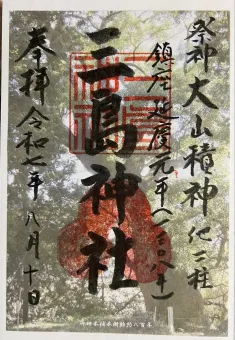 祭神 大山積神 他二柱
鎮座 延慶元年(一三〇八年)
三島神社
奉拝 令和七年八月十日